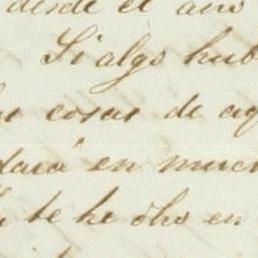 desde el año
Si algo hub
cosas de aq
tará en much
te he dho en